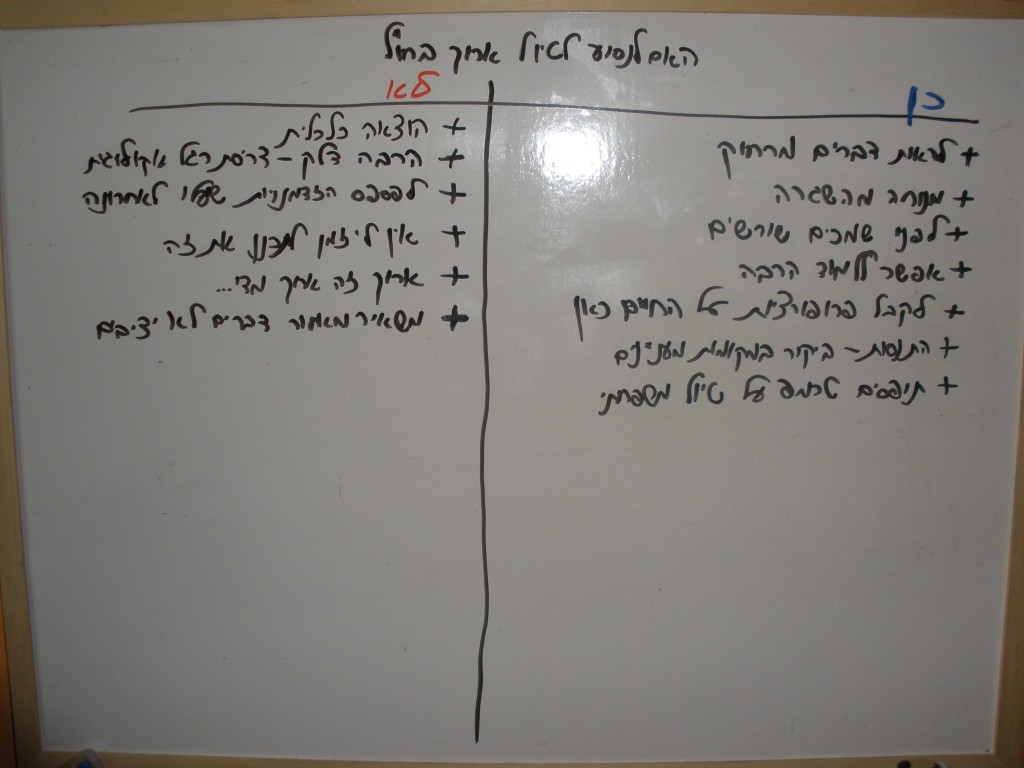 האם לנסוע לטיול ארוך בחו"ל
כן
+ לראות דברים מרחוק
+ מנוחה מהשגרה
+ לפני שמכים שורשים
+ אפשר ללמוד הרבה
+ לקבל פרופורציות על החיים כאן
+ התנסות - ביקור במקומות מעניינים
+ תיפסים טרמפ על טיול משפחתי
לא
+ הוצאה כלכלית
+ הרבה דלק - דריסת רגל אקולוגית
+ לפספס הזדמנויות שעלו לאחרונה
+ אין לי זמן לתכנן את זה
+ ארוך זה ארוך מדי...
+ משאיר מאחור דברים לא יציבים